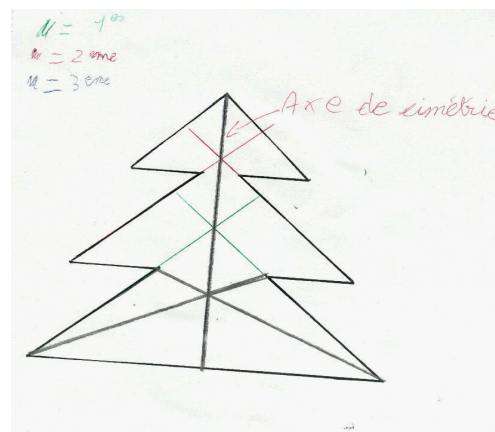 = 1er
= 2 eme
= 3 eme
Axe de simétrie